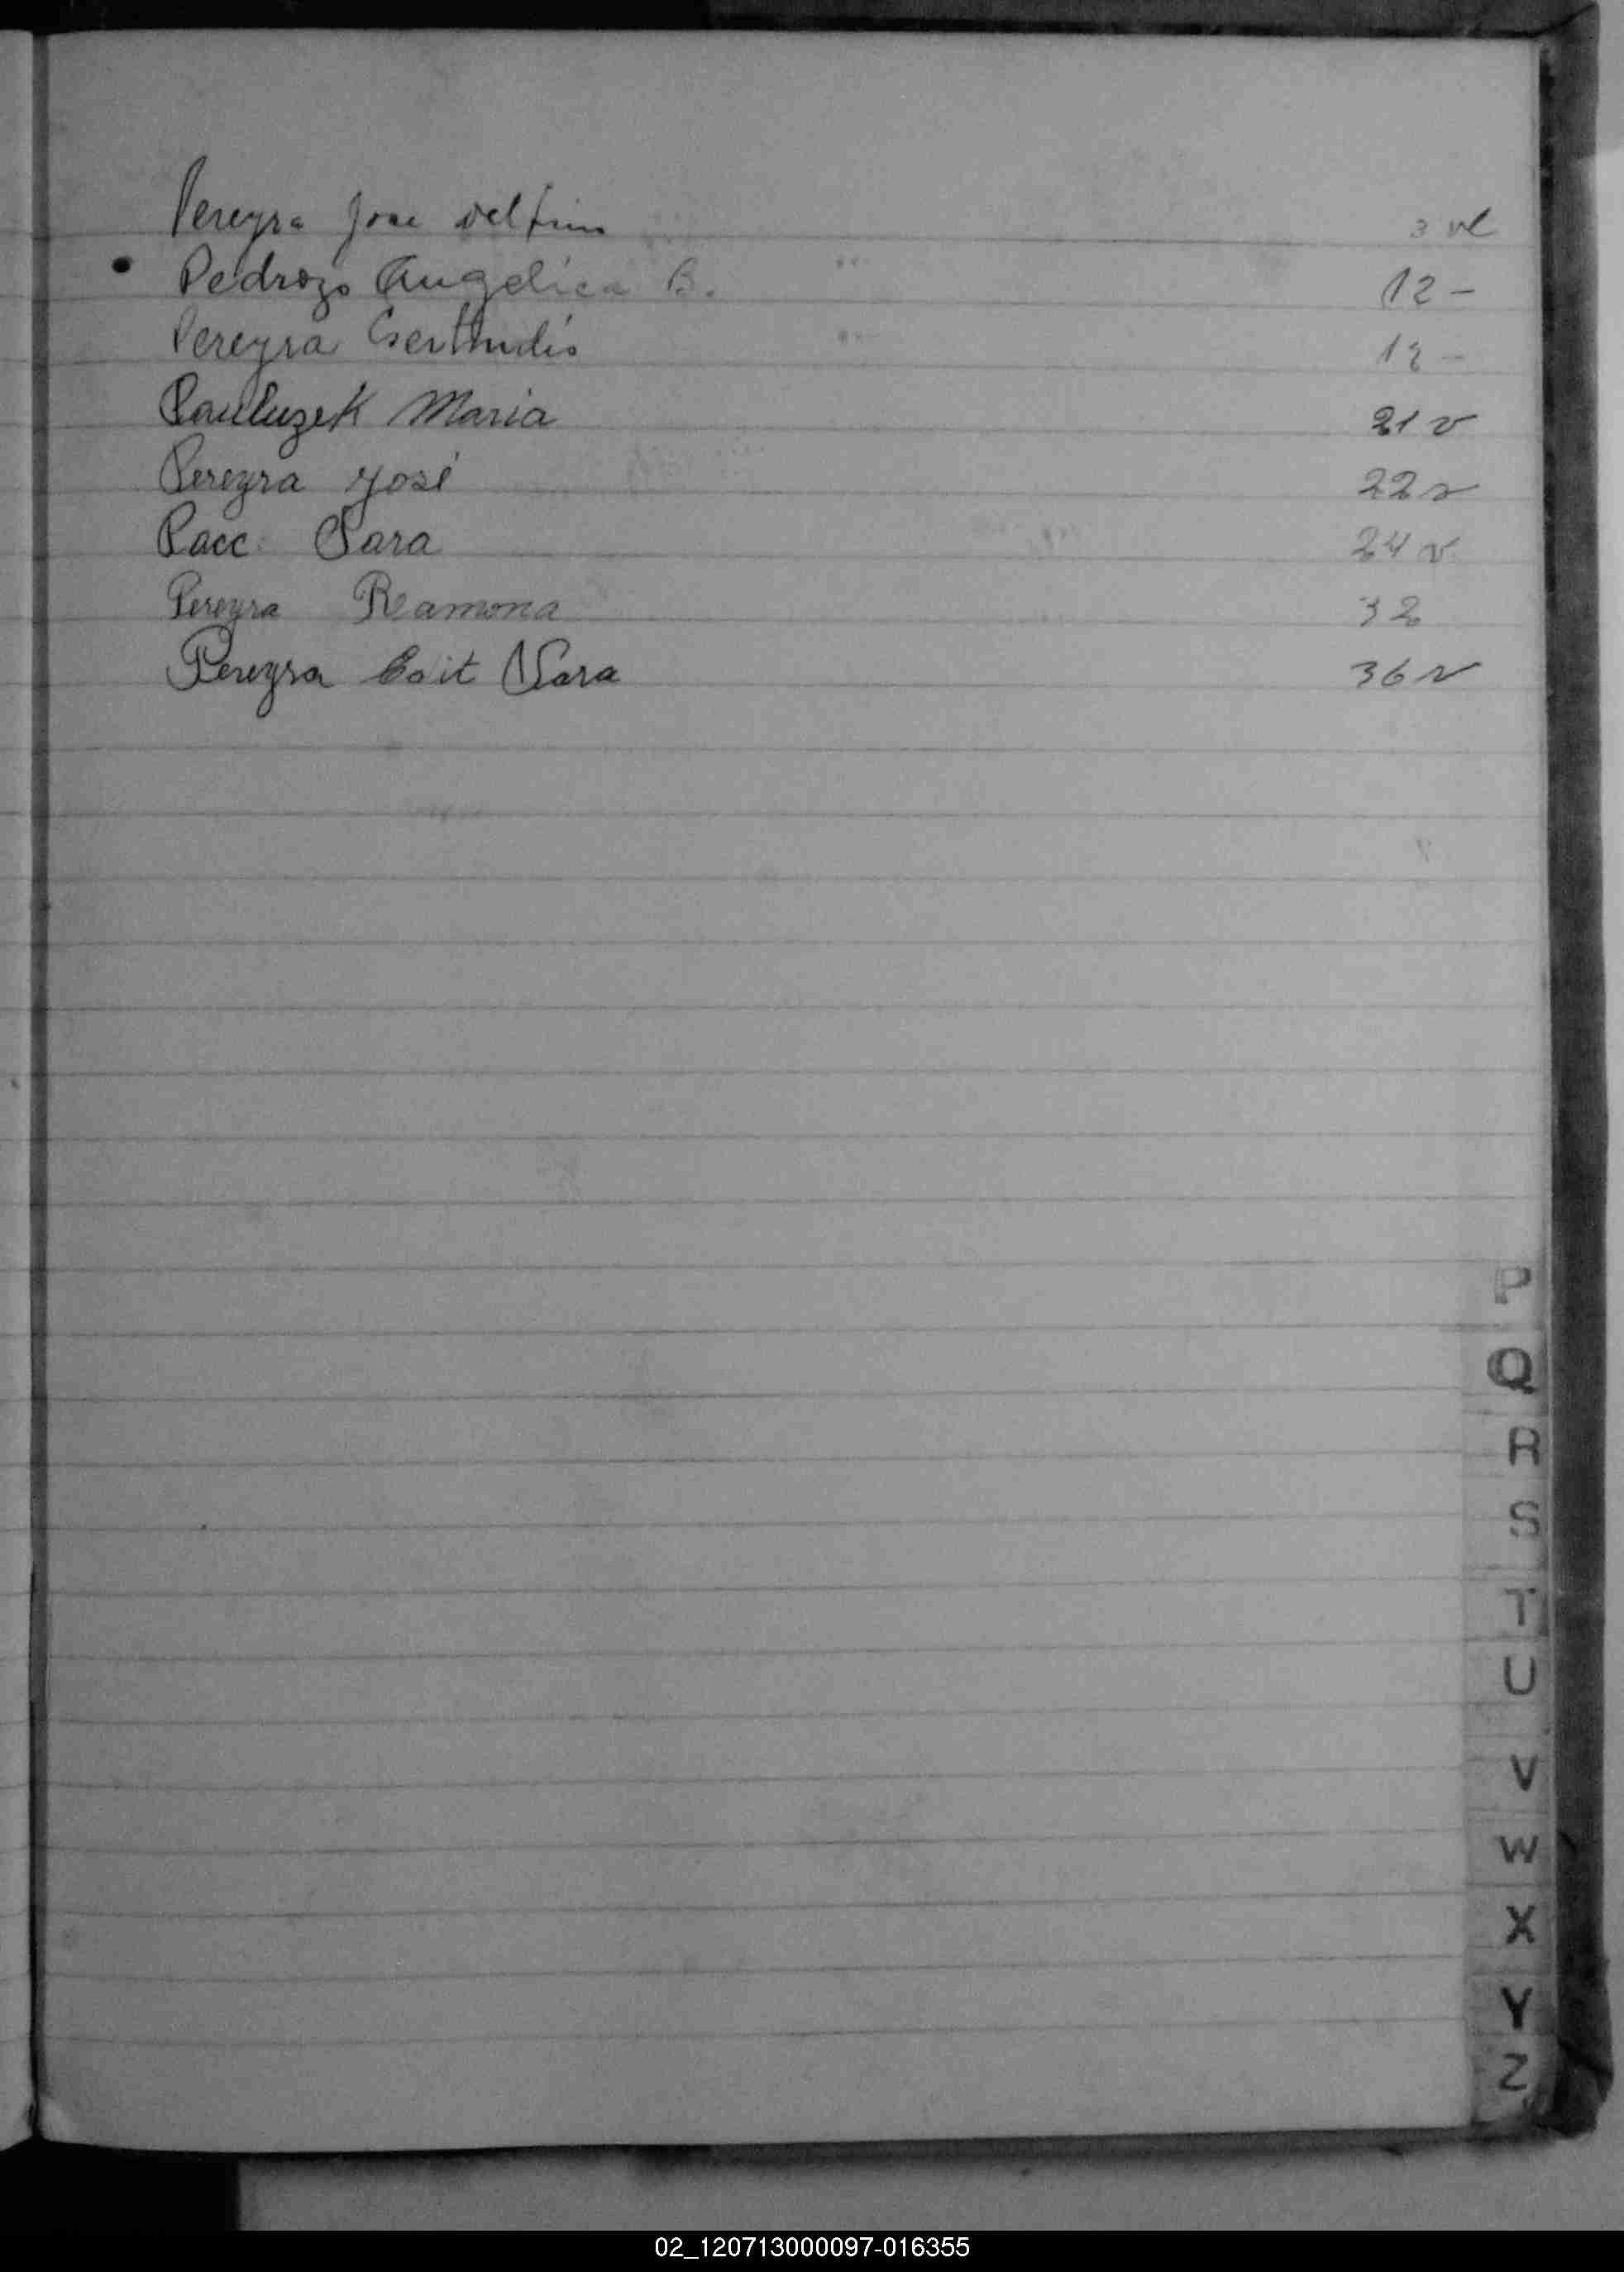 Pereyra Jose Delfin 3 vl
Pedrozo Angelica B. 12 -
Pereyra Gertrudis 12 -
Pauluzek Maria 21 v
Pereyra José 22 v
Pacc Sara 24 v
Pereyra Ramona 32
Pereyra Sara 36 v
P
Q
R
S
T
U
V
W
X
Y
Z
02_120713000097-016355